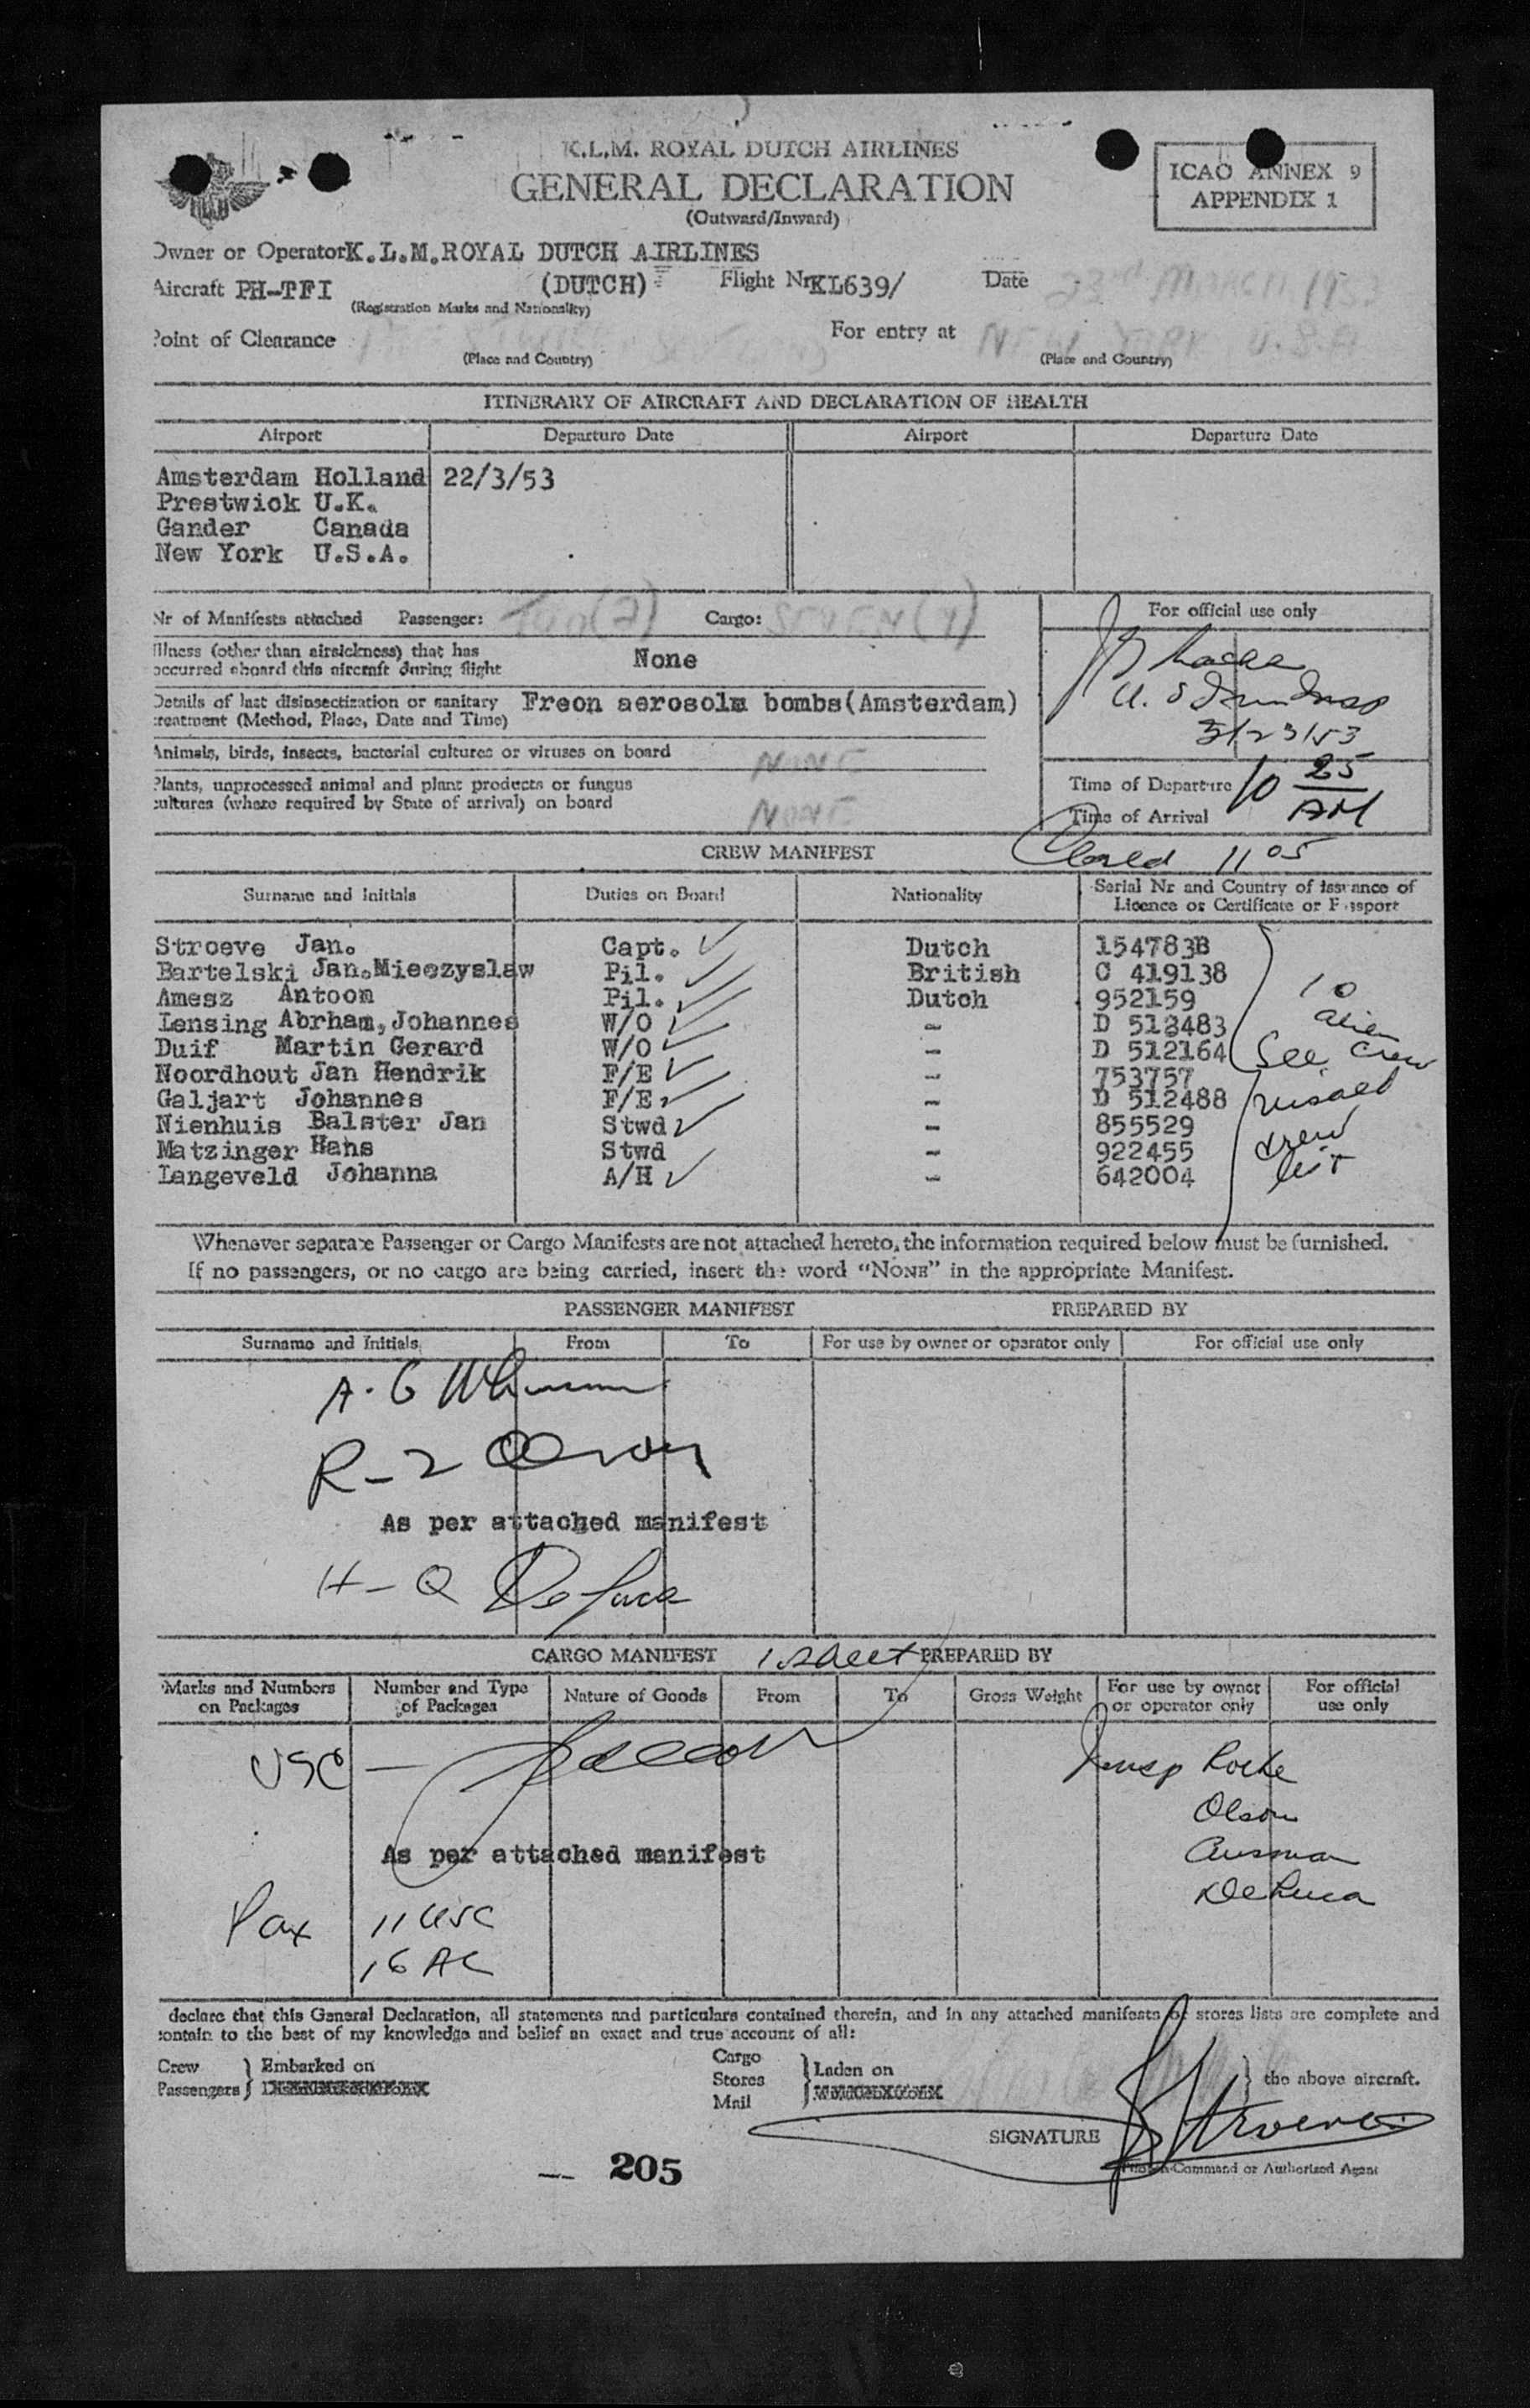 K.L.M. ROYAL DUTCH AIRLINES
GENERAL DECLARATION
(Outward/Inward)
ICAO ANNEX 9
APPENDIX 1
Owner or Operator K.L.M. ROYAL DUTCH AIRLINES
Aircraft PH-TFI (DUTCH) Flight Nr KL639/ Date 23rd MARCH 1953
(Registration Marks and Nationality)
Point of Clearance For entry at NEW YORK U.S.A
(Place and Country) (Place and Country)
ITINERARY OF AIRCRAFT AND DECLARATION OF HEALTH
Airport Departure Date Airport Departure Date
Amsterdam Holland 22/3/53
Prestwick U.K.
Gander Canada
New York U.S.A.
Nr of Manifests attached Passenger: Cargo: SEVEN (7)
For official use only
Illness (other than airsickness) that has
occurred aboard this aircraft during flight None
Details of last disinsectization or sanitary
treatment (Method, Place, Date and Time) Freon aerosolm bombs(Amsterdam)
3/23/53
Animals, birds, insects, bacterial cultures or viruses on board NONE
Plants, unprocessed animal and plant products or fungus
cultures (where required by State of arrival) on board NONE
Time of Departure 10 25
Time of Arrival AM
CREW MANIFEST 11 05
Surname and Initials Duties on Board Nationality Serial Nr and Country of Issuance of
Licence or Certificate or Passport
Stroeve Jan. Capt. Dutch 154783B
Bartelski Jan.Mieczyslaw Pil. British C 419138
Amesz Antoon Pil. Dutch 952159
Lensing Abrham,Johannes W/O - D 513483
Duif Martin Gerard W/O - D 512164
Noordhout Jan Hendrik F/E - 753757
Galjart Johannes F/E - D 512488
Nienhuis Balster Jan Stwd - 855529
Matzinger Hans Stwd - 922455
Langeveld Johanna A/H - 642004
10
alien
See crew
visaed
crew
list
Whenever separate Passenger or Cargo Manifests are not attached hereto, the information required below must be furnished.
If no passengers, or no cargo are being carried, insert the word "NONE" in the appropriate Manifest.
PASSENGER MANIFEST PREPARED BY
Surname and Initials From To For use by owner or operator only For official use only
R-2 Olson
As per attached manifest
H-Q De Luca
CARGO MANIFEST 1 sheet PREPARED BY
Marks and Numbers
on Packages
Number and Type
of Packages
Nature of Goods From To Gross Weight
For use by owner
or operator only
For official
use only
USC -
Insp Roche
Olson
Ausman
DeLuca
As per attached manifest
Pax 11 USC
16 AC
declare that this General Declaration, all statements and particulars contained therein, and in any attached manifests or stores lists are complete and
contain to the best of my knowledge and belief an exact and true account of all:
Crew
Passengers
Embarked on
Cargo
Stores
Mail
Laden on
the above aircraft.
SIGNATURE J Stroeve
Pilot-in-Command or Authorized Agent
205